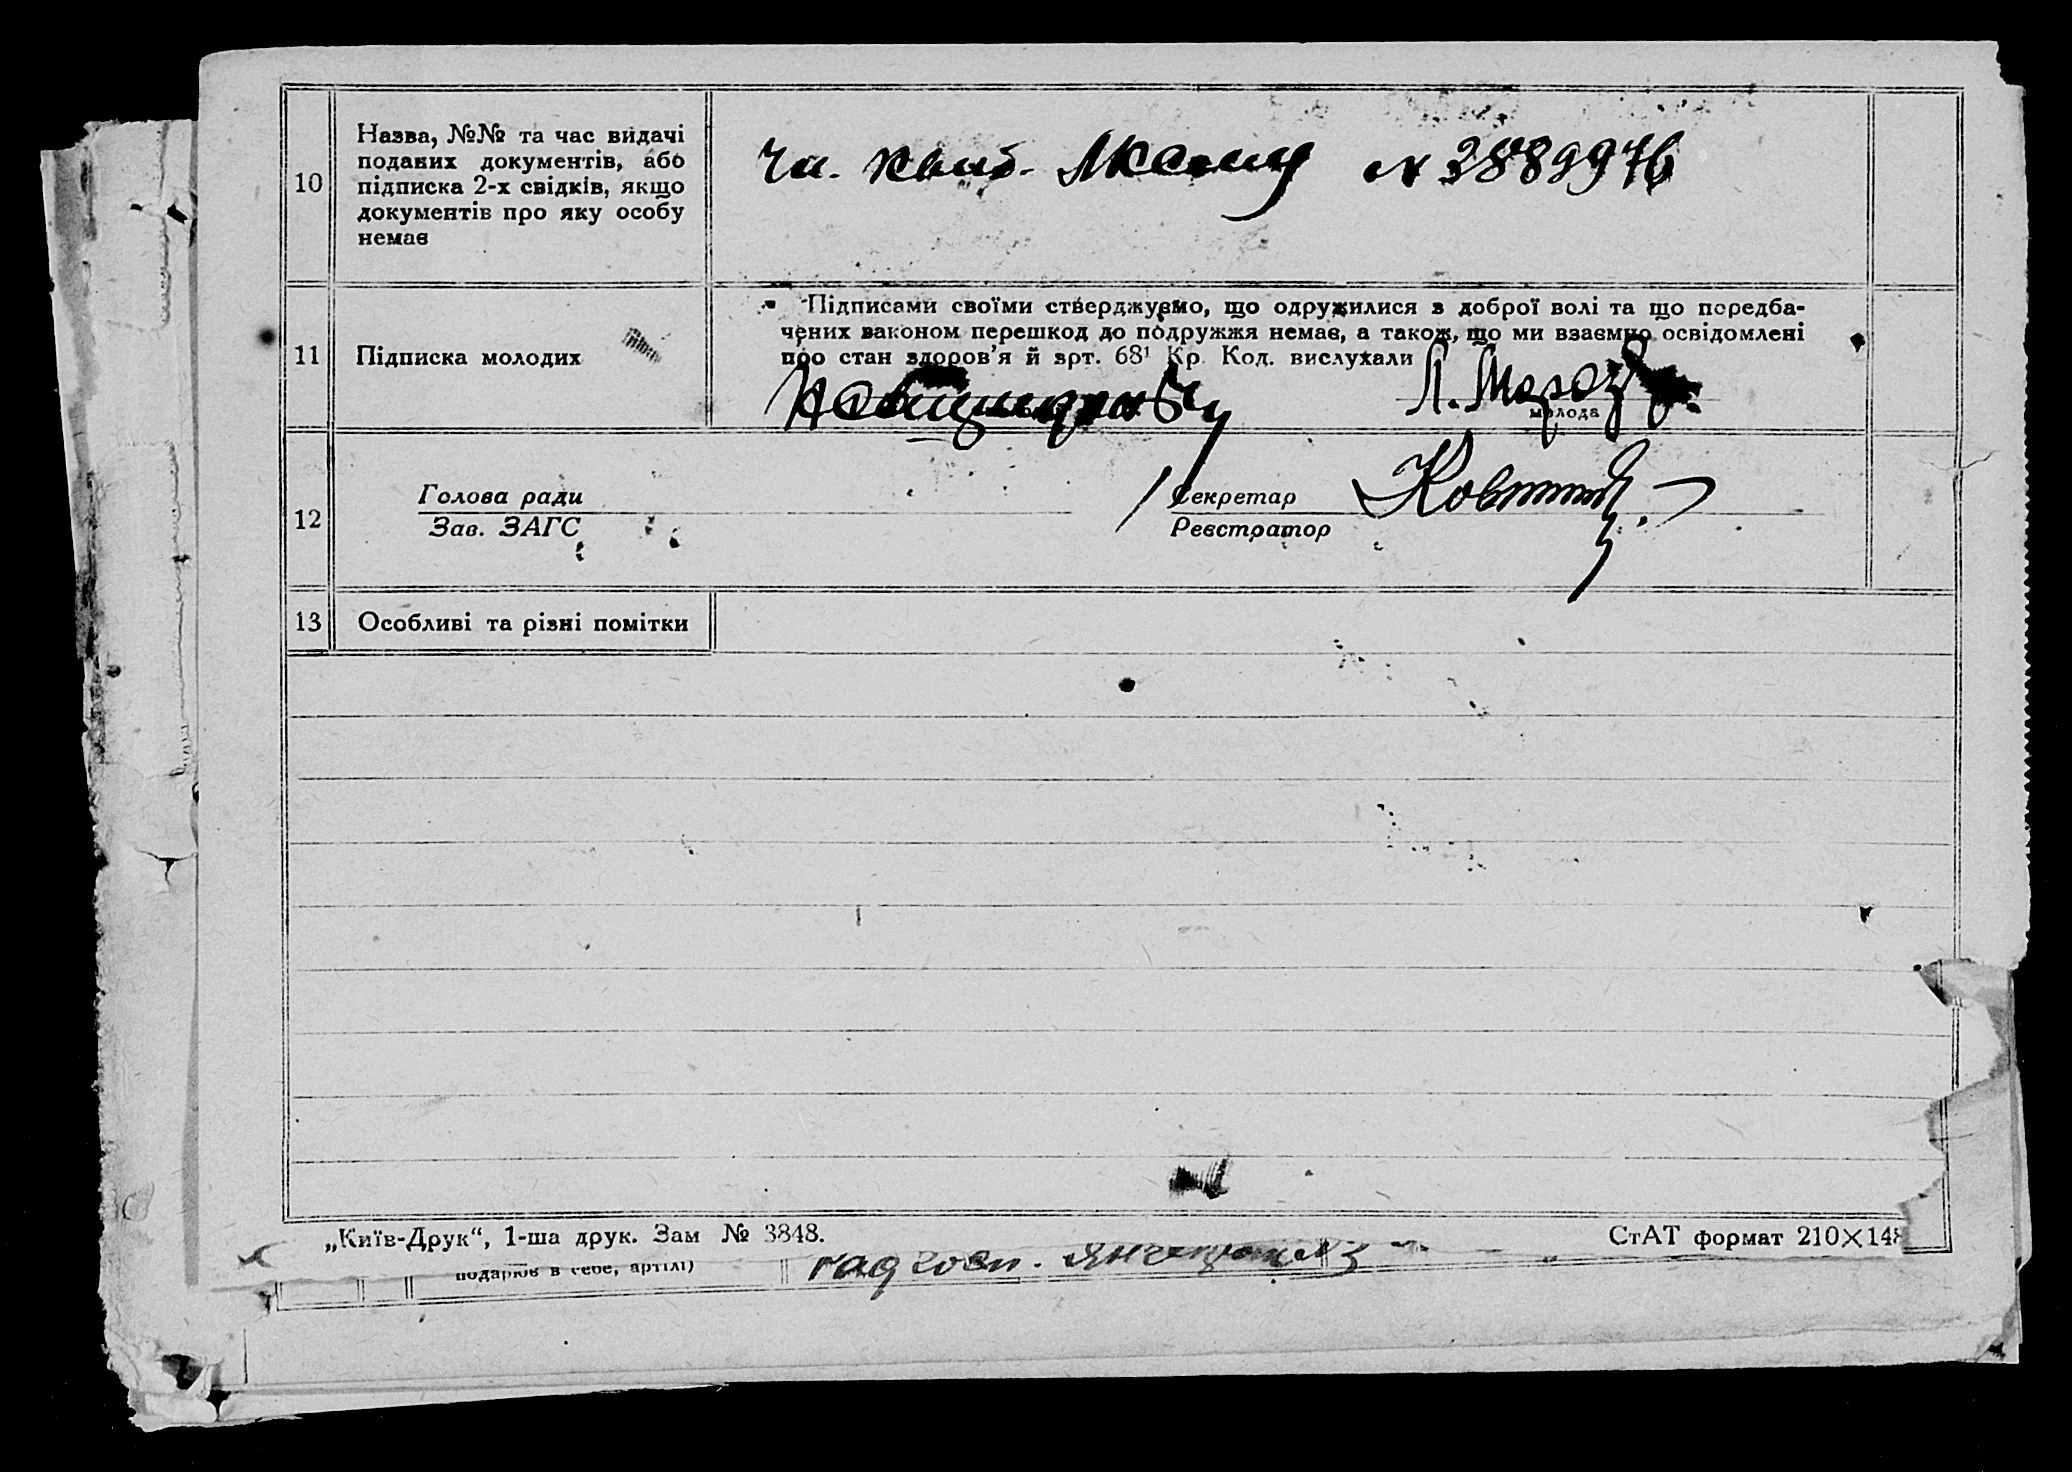 10
Назва, №№ та час видачі
поданих документів, або
підписка 2-х свідків, якщо
документів про яку особу
немає
Чл. N 3889976
11
Підписка молодих
Підписами своїми стверджуємо, що одружилися з доброї волі та що передба-
чених законом перешкод до подружжя немає, а також, що ми взаємно освідомлені
про стан здоров'я й арт. 68¹ Кр. Код. вислухали
Л. Мороз
молода
12
Голова ради
Зав. ЗАГС
Секретар
Реєстратор
13
Особливі та різні помітки
„Київ-Друк“, 1-ша друк. Зам № 3848.
СтАТ формат 210×148
подарює в себе, артілі)